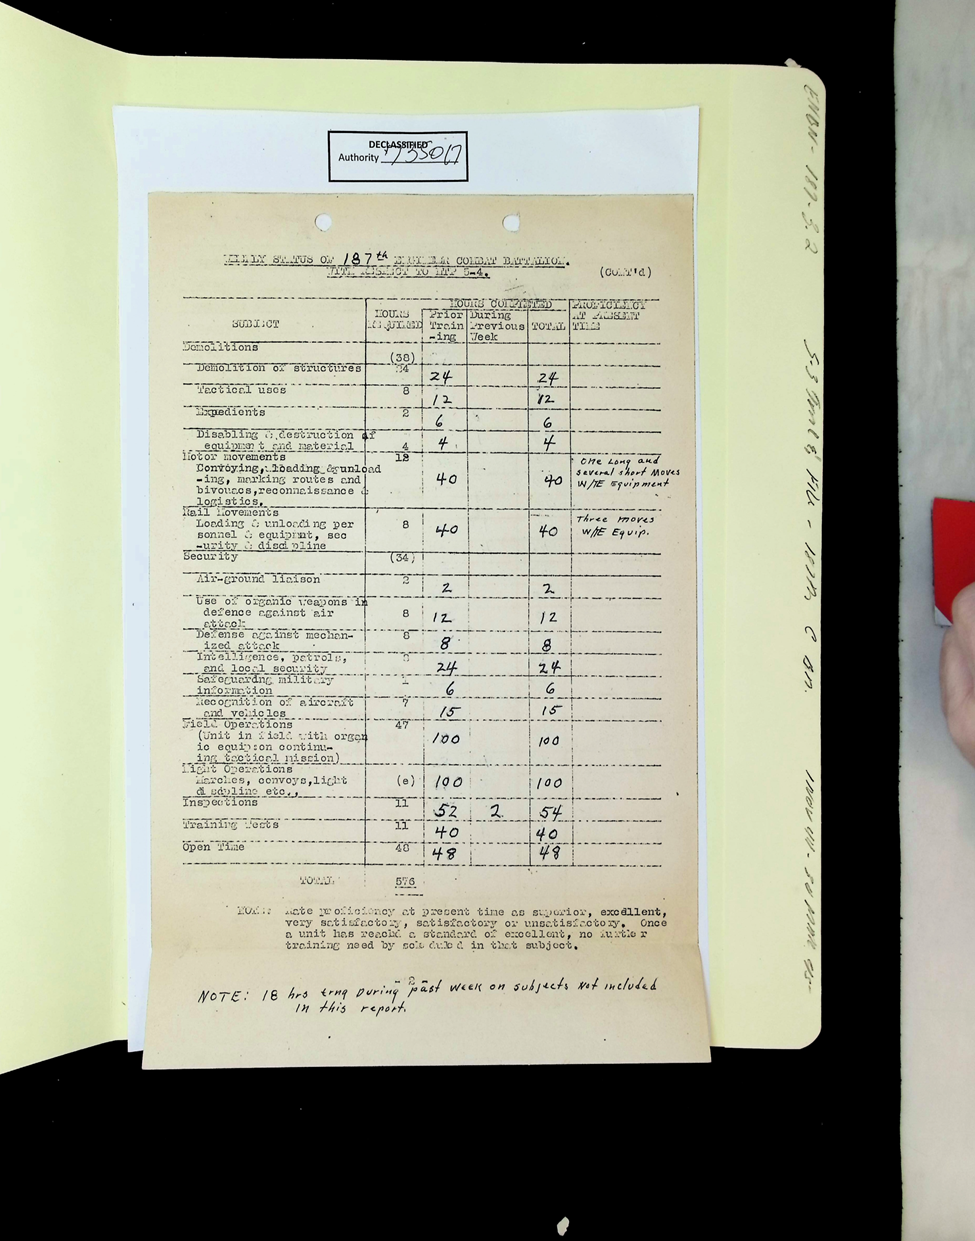 DECLASSIFIED
Authority 735017
WEEKLY STATUS OF 187th ENGINEER COMBAT BATTALION.
WITH RESPECT TO MTP 5-4. (CONT'd)
SUBJECT HOURS REQUIRED HOURS COMPLETED PROFICIENCY AT PRESENT TIME
Prior Train-ing During Previous Week TOTAL
Demolitions (38)
Demolition of structures 24 24 24
Tactical uses 8 12 12
Expedients 2 6 6
Disabling & destruction of
equipment and material 4 4 4
Motor movements 18
Convoying, loading & unload
-ing, marking routes and 40 40
bivouacs,reconnaissance &
logistics.
One Long and
several short Moves
W/TE Equipment
Rail Movements
Loading & unloading per 8
sonnel & equipmnt, sec 40 40
-urity & discipline
Three moves
W/TE Equip.
Security (34)
Air-ground liaison 2 2 2
Use of organic weapons in
defence against air 8 12 12
attack
Defense against mechan- 8
ized attack 8 8
Intelligence, patrols,
and local security 24 24
Safeguardng military
information 6 6
Recognition of aircraft 7
and vehicles 15 15
Field Operations 47
(Unit in field with organ
ic equip on continu- 100 100
ing tactical mission)
Night Operations
Marches, convoys,light (e) 100 100
discipline etc.,
Inspections 11 52 2 54
Training Tests 11 40 40
Open Time 48 48 48
TOTAL 576
NOTE: Rate proficiency at present time as superior, excellent,
very satisfactory, satisfactory or unsatisfactory. Once
a unit has reachd a standard of excellent, no further
training need by scheduled in that subject.
NOTE: 18 hrs trng During past week on subjects Not included
in this report.
ENBN-187-3.2